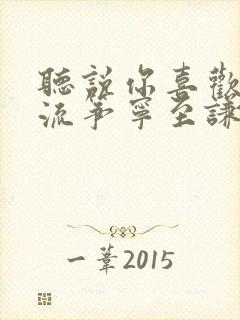 聽說你喜歡
流爭寧至謙
一葦2015